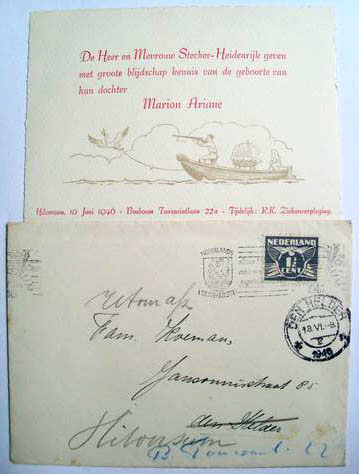 De Heer en Mevrouw Stecher-Heidenrijk geven
met groote blijdschap kennis van de geboorte van
hun dochter
Marion Ariane
Hilversum, 10 Juni 1946 - Bosboom Toussaintlaan 22a - Tijdelijk: R.K. Ziekenverpleging.
NEDERLAND
1½
CENT
DEN HELDER
18.VI.-8.
2
1946
Fam. Koeman,
Janssoniusstraat 85
den Helder
Hilversum